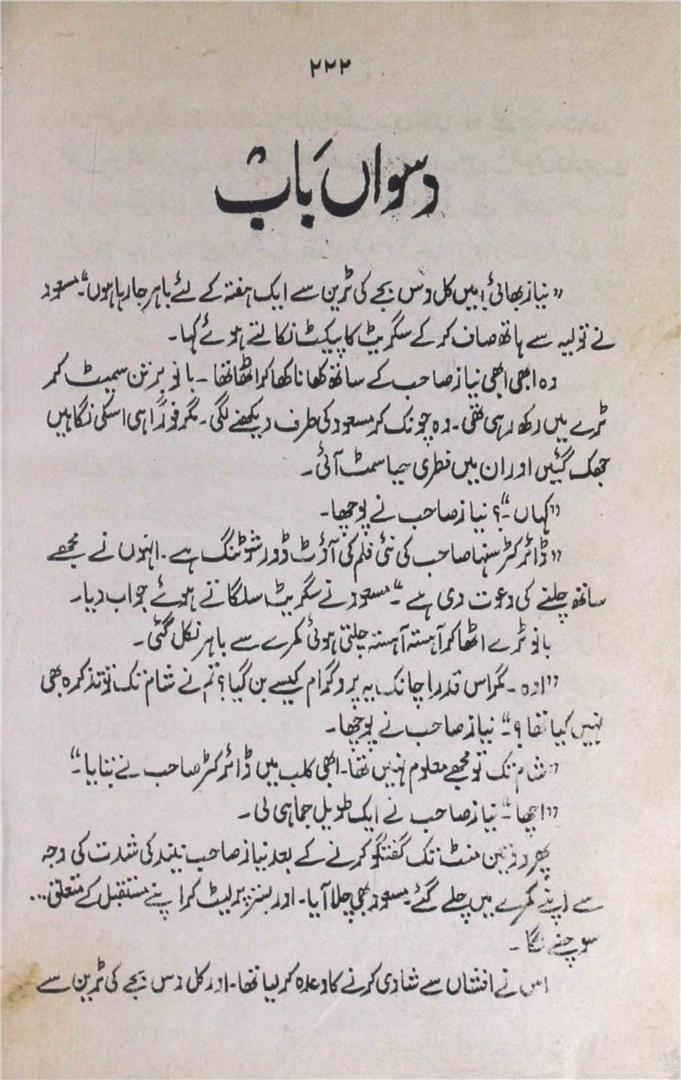 ۲۲۲
دسواں باب
"نیاز بھائی! میں کل دس بجے کی ٹرین سے ایک ہفتہ کے لئے باہر جا رہا ہوں۔" مسعود
نے تولیہ سے ہاتھ صاف کر کے سگریٹ کا پیکٹ نکالتے ہوئے کہا۔
وہ ابھی ابھی نیاز صاحب کے ساتھ کھانا کھا کر اٹھا تھا۔ بانو برتن سمیٹ کر
ٹرے میں رکھ رہی تھی۔ وہ چونک کر مسعود کی طرف دیکھنے لگی۔ مگر فوراً ہی اسکی نگاہیں
جھک گئیں اور ان میں فطری حیا سمٹ آئی۔
"کہاں۔"؟ نیاز صاحب نے پوچھا۔
"ڈائرکٹر سنہا صاحب کی نئی فلم کی آؤٹ ڈور شوٹنگ ہے۔ انہوں نے مجھے
ساتھ چلنے کی دعوت دی ہے۔" مسعود نے سگریٹ سلگاتے ہوئے جواب دیا۔
بانو ٹرے اٹھا کر آہستہ آہستہ چلتی ہوئی کمرے سے باہر نکل گئی۔
"اوہ۔ مگر اس قدر اچانک یہ پروگرام کیسے بن گیا؟ تم نے شام تک تو تذکرہ بھی
نہیں کیا تھا؟" نیاز صاحب نے پوچھا۔
"شام تک تو مجھے معلوم نہیں تھا۔ ابھی کلب میں ڈائرکٹر صاحب نے بتایا۔"
"اچھا۔" نیاز صاحب نے ایک طویل جماہی لی۔
پھر دو تین منٹ تک گفتگو کرنے کے بعد نیاز صاحب نیند کی شدت کی وجہ
سے اپنے کمرے میں چلے گئے۔ مسعود بھی چلا آیا۔ اور بستر پر لیٹ کر اپنے مستقبل کے متعلق...
سوچنے لگا۔
اس نے افشاں سے شادی کرنے کا وعدہ کر لیا تھا۔ اور کل دس بجے کی ٹرین سے